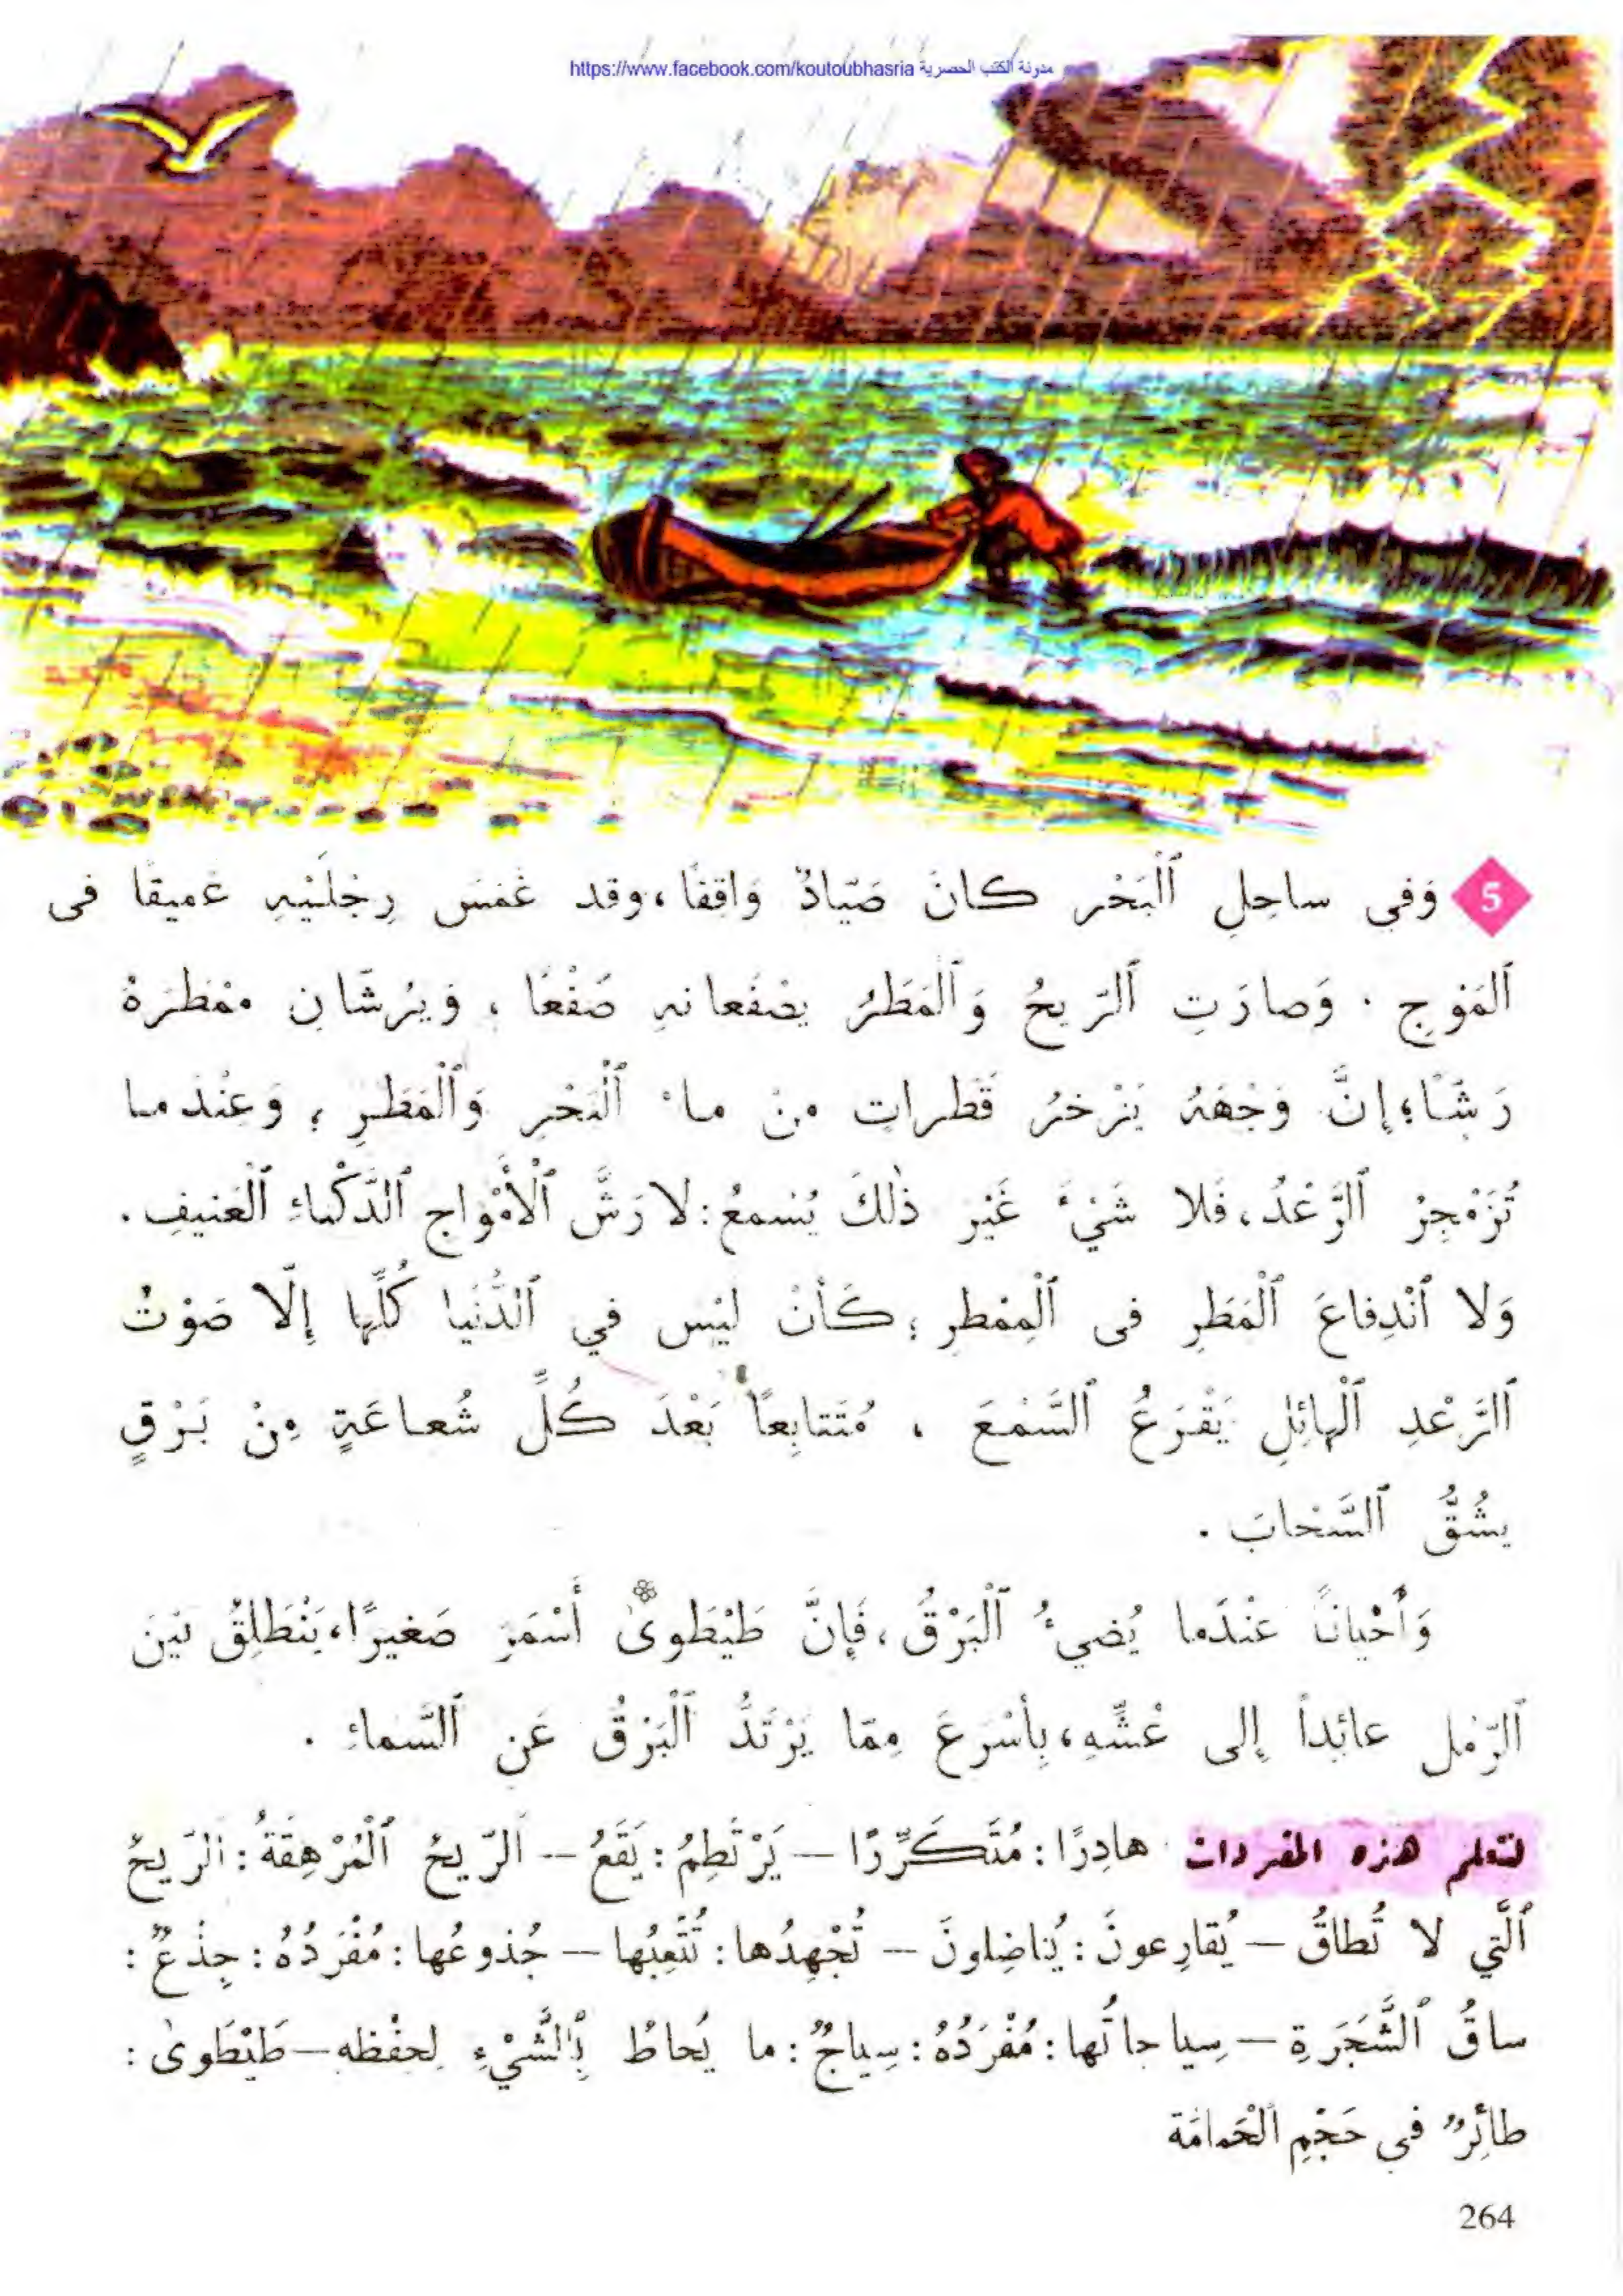 https://www.facebook.com/koutoubhasria مدونة الكتب الحصرية
5 وَفي ساحِلِ ٱلْبَحْر كانَ صَيّادٌ وَاقِفًا، وقد غَمَسَ رِجْلَيْهِ عَميقًا فى
ٱلمَوْجِ . وَصارَتِ ٱلرّيحُ وَٱلْمَطَرُ يصْفَعانهِ صَفْعًا ، وَيُرشّانِ مِمْطَرَهُ
رَشًّا؛ إنَّ وَجْهَهُ يَزْخرُ قَطراتٍ منْ ماءِ ٱلْبَحْرِ وَٱلْمَطَرِ ؛ وَعِنْدَما
تُزَمْجِرُ ٱلرَّعْدُ، فَلا شَيْءَ غَيْر ذٰلكَ يُسْمعُ : لا رَشَّ ٱلْأَمْواجِ ٱلدَّكْماءِ ٱلْعَنيفِ.
وَلا ٱنْدِفاعَ ٱلْمَطَرِ فى ٱلْمِمْطرِ ؛ كَأنْ ليْس في ٱلدُّنْيا كُلِّها إلّا صَوْتُ
ٱلرَّعْدِ ٱلْهائِلِ يَقْرَعُ ٱلسَّمْعَ ، مُتَتابِعاً بَعْدَ كُلِّ شُعاعَةٍ مِنْ بَرْقٍ
يشُقُّ ٱلسَّحابَ .
وَأَحْياناً عنْدَما يُضيءُ ٱلْبَرْقُ، فَإنَّ طَيْطَوىٰ أَسْمَرَ صَغيرًا، يَنْطَلِقُ بَيْنَ
ٱلرّمْلِ عائِداً إلى عْشِّهِ، بِأسْرَعَ مِمّا يَرْتَدُّ ٱلْبَرْقُ عَنِ ٱلسَّماءِ .
لنتعلم هذه المفردات هادِرًا : مُتَكَرِّرًا – يَرْتَطِمُ : يَقَعُ – اَلرّيحُ ٱلْمُرْهِقَةُ : اَلرّيحُ
ٱلَّتي لا تُطاقُ – يُقارِعونَ : يُناضِلونَ – تُجْهِدُها : تُتْعِبُها – جُذوعُها : مُفْرَدُهُ : جِذْعٌ :
ساقُ ٱلشَّجَرَةِ – سِياجاتُها : مُفْرَدُهُ : سِياجٌ : ما يُحاطُ بِٱلشَّيْءِ لِحفْظه – طَيْطَوىٰ :
طائِرٌ في حَجْمِ ٱلْحَمامَة
264